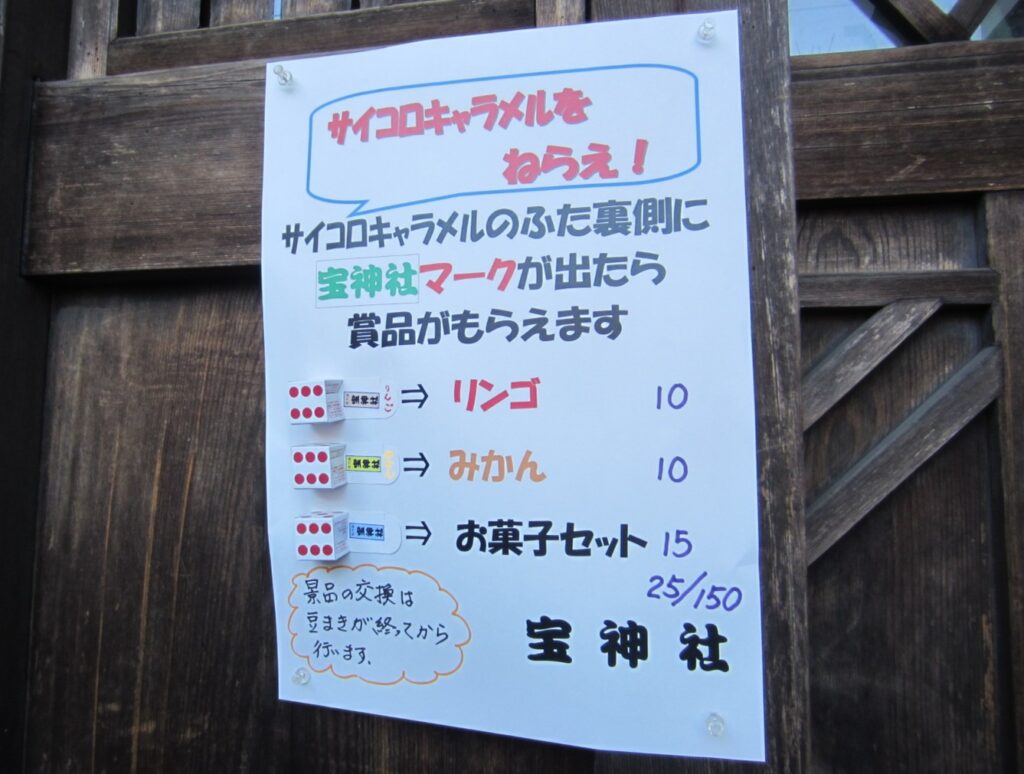 サイコロキャラメルを
ねらえ!
サイコロキャラメルのふた裏側に
宝神社マークが出たら
賞品がもらえます
宝神社 りんご ⇒ リンゴ 10
宝神社 ⇒ みかん 10
宝神社 ⇒ お菓子セット 15
25/150
景品の交換は
豆まきが終ってから
行います.
宝神社